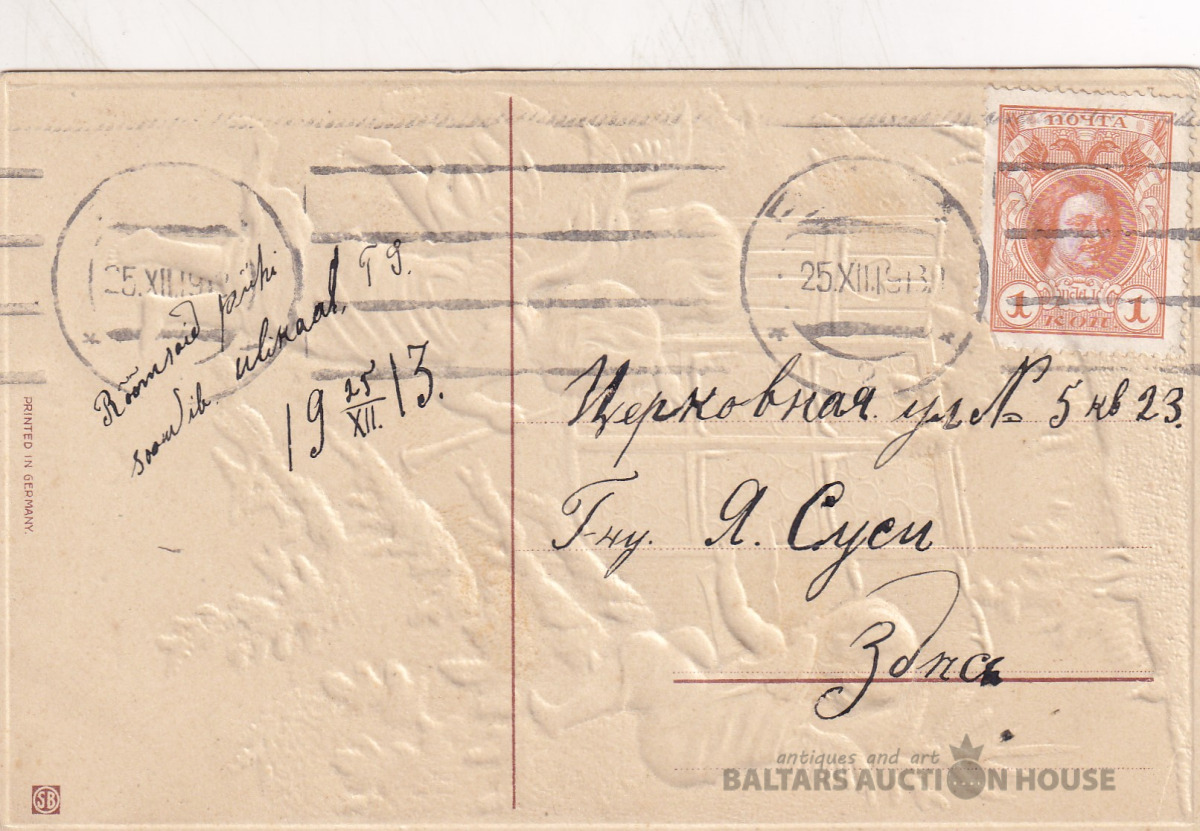 ПОЧТА
1 КОП. 1
25.XII.191
25.XII.1913.
Rõõmsaid pühi
soovib
T G.
19 25/XII. 13.
Церковная ул № 5 кв 23.
Г-ну. Я. Суси
Здѣсь
PRINTED IN GERMANY.
SB
antiques and art
BALTARS AUCTION HOUSE